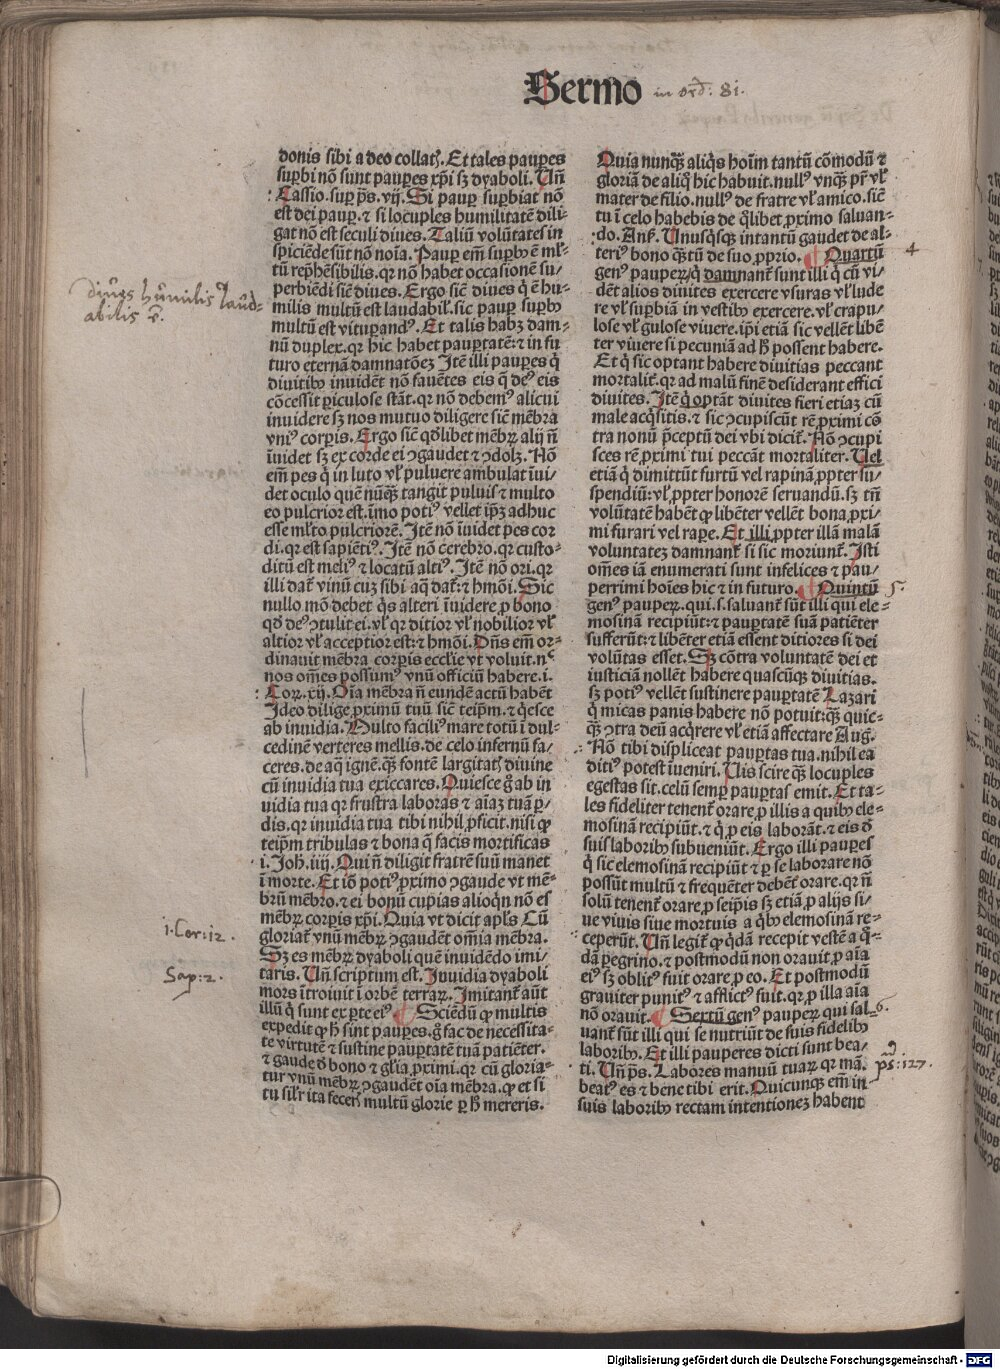 Sermo in ord: 81.
donis sibi a deo collat. Et tales paupes
supbi nō sunt paupes xp̄i sꝫ dyaboli. Uñ
Cassio. sup ps̄. vij. Si paup supbiat nō
est dei paup. ⁊ si locuples humilitatē dili-
gat nō est seculi diues. Taliū volūtates in
spiciēde sūt nō noīa. Paup em̄ supbꝰ ē ml̄-
tū rep̄hēsibilis. qr nō habet occasionē su-
perbiēdi sic̄ diues. Ergo sic̄ diues q̄ ē hu-
milis multū est laudabil̓. sic paup supbꝰ
multū est vitupandꝰ. Et talis habꝫ dam-
nū duplex. qr hic habet paupertatē: ⁊ in fu
turo eternā damnatōeꝫ Itē illi paupes q̄
diuitibꝰ inuidēt nō fauētes eis q̄ deꝰ eis
cōcessit piculose stāt. qr nō debemꝰ alicui
inuidere sꝫ nos mutuo diligere sic̄ mēbra
vniꝰ corpis. Ergo sic̄ qdlibet mēbꝝ alij ñ
īuidet sꝫ ex corde ei ꝯgaudet ⁊ ꝯdolꝫ. Nō
em̄ pes q̄ in luto vl̓ puluere ambulat īui-
det oculo quē nūqꝫ tangit puluis ⁊ multo
eo pulcrior est. īmo potiꝰ vellet ip̄ꝫ adhuc
esse ml̄to pulcriorē. Itē nō īuidet pes cor
di. qr est sapiētiꝰ. Itē nō cerebro. qr custo-
ditū est meliꝰ ⁊ locatū altiꝰ. Itē nō ori. qr
illi dat̄ vinū cuꝫ sibi aq̄ dat̄: ⁊ hmōi. Sic
nullo mō debet q̄s alteri īuidere ꝓ bono
qd deꝰ ꝯtulit ei. vl̓ qr ditior vl̓ nobilior vl̓
altior vl̓ acceptior est: ⁊ hmōi. Dn̄s em̄ or-
dinauit mēbra corpis eccl̓ie vt voluit. nᶜ
nos om̄es possumꝰ vnū officiū habere. i.
Coꝝ. xij. Oīa mēbra ñ eundē actū habēt
Ideo dilige ꝓximū tuū sic̄ teip̄m. ⁊ q̄esce
ab inuidia. Multo faciliꝰ mare totū ī dul-
cedinē verteres mellis. de celo infernū fa-
ceres. de aq̄ ignē. qꝫ fontē largitat̄ diuine
cū inuidia tua exiccares. Quiesce g̊ ab in
uidia tua qr frustra laboras ⁊ aīaꝫ tuā p-
dis. qr inuidia tua tibi nihil ꝓficit. nisi ꝙ
teip̄m tribulas ⁊ bona q̄ facis mortificas
i. Joh̄. iiij. Qui ñ diligit fratrē suū manet
ī morte. Et iō potiꝰ ꝓximo ꝯgaude vt mē-
brū mēbro. ⁊ ei bonū cupias alioq̄n nō es
mēbꝝ corpis xp̄i. Quia vt dicit apl̓s Cū
gloriat̄ vnū mēbꝝ ꝯgaudēt om̄ia mēbra.
Sꝫ es mēbꝝ dyaboli quē inuidēdo imi-
taris. Uñ scriptum est. Inuidia dyaboli
mors ītroiuit ī orbē terraꝝ. Imitant̄ aūt
illū q̄ sunt ex pte eiꝰ Sciēdū ꝙ multis
expedit ꝙ h̄ sint paupes. g̊ fac de necessita-
te virtutē ⁊ sustine paupertatē tuā patiēter.
⁊ gaude d̄ bono ⁊ gl̓ia ꝓximi. qr cū gloria-
tur vnū mēbꝝ ꝯgaudēt oīa mēbra. ꝙ et si
tu sil̓r ita fecer̄ multū glorie p h̄ mereris.
Quia nunqꝫ aliq̄s hoīm tantū cōmodū ⁊
gloriā de aliq̄ hic habuit. nullꝰ vnqꝫ pr̄ vl̓
mater de filio. nullꝰ de fratre vl̓ amico. sic̄
tu ī celo habebis de q̄libet ꝓximo saluan-
do. Ans̄. Unusq̄sqꝫ intantū gaudet de al-
teriꝰ bono qꝫtū de suo ꝓprio. Quartū
genꝰ paupeꝝ q̄ damnant̄ sunt illi q̄ cū vi-
dēt alios diuites exercere vsuras vl̓ lude
re vl̓ supbiā in vestibꝰ exercere. vl̓ crapu-
lose vl̓ gulose viuere. ip̄i etiā sic vellēt libē
ter viuere si pecuniā ad h̄ possent habere.
Et q̄ sic optant habere diuitias peccant
mortalit̄. qr ad malū finē desiderant effici
diuites. Itē q̄ optāt diuites fieri etiaꝫ cū
male acq̄sitis. ⁊ sic ꝯcupiscūt rē ꝓximi cō
tra nonū p̄ceptū dei vbi dicit̄. Nō ꝯcupi
sces rē ꝓximi tui peccāt mortaliter. Uel
etiā q̄ dimittūt furtū vel rapinā ꝓpter su-
spendiū: vl̓ ꝓpter honorē seruandū. sꝫ tn̄
volūtatē habēt ꝙ libēter vellēt bona ꝓxi-
mi furari vel rape. Et illi ꝓpter illā malā
voluntateꝫ damnant̄ si sic moriunt̄. Isti
om̄es iā enumerati sunt infelices ⁊ pau-
perrimi hoīes hic ⁊ in futuro. Quintū
genꝰ paupeꝝ. qui. s. saluant̄ sūt illi qui ele-
mosinā recipiūt: ⁊ paupertatē suā patiēter
sufferūt: ⁊ libēter etiā essent ditiores si dei
volūtas esset. Sꝫ cōtra voluntatē dei et
iusticiā nollēt habere quascūqꝫ diuitias.
sꝫ potiꝰ vellēt sustinere paupertatē Lazari
q̄ micas panis habere nō potuit: qꝫ quic-
qꝫ ꝯtra deū acq̄rere vl̓ etiā affectare Aug.
Nō tibi displiceat paupertas tua. nihil ea
ditiꝰ potest īueniri. Uis scire qꝫ locuples
egestas sit. celū semp paupertas emit. Et ta-
les fideliter tenent̄ orare ꝓ illis a quibꝰ ele-
mosinā recipiūt. ⁊ q̄ ꝓ eis laborāt. ⁊ eis d̄
suis laboribꝰ subueniūt. Ergo illi paupes
q̄ sic elemosinā recipiūt ⁊ p se laborare nō
possūt multū ⁊ frequēter debēt orare. qr ñ
solū tenent̄ orare ꝓ seip̄is sꝫ etiā ꝓ alijs si-
ue viuis siue mortuis a q̄bꝰ elemosinā re-
ceperūt. Uñ legit̄ ꝙ q̄dā recepit vestē a q̄-
dā pegrino. ⁊ postmodū non orauit ꝓ aīa
eiꝰ sꝫ oblitꝰ fuit orare ꝓ eo. Et postmodū
grauiter punitꝰ ⁊ afflictꝰ fuit. qr ꝓ illa aīa
nō orauit. Sextū genꝰ paupeꝝ qui sal-
uant̄ sūt illi qui se nutriūt de suis fidelibꝰ
laboribꝰ. Et illi pauperes dicti sunt bea-
ti. Uñ ps̄. Labores manuū tuaꝝ qr mā.
beatꝰ es ⁊ bene tibi erit. Quicunqꝫ em̄ in
suis laboribꝰ rectam intentioneꝫ habent
diues humilis laud-
abilis ē.
i. Cor: 12.
Sap: 2.
4
5.
6.
ps: 127.
Digitalisierung gefördert durch die Deutsche Forschungsgemeinschaft - DFG